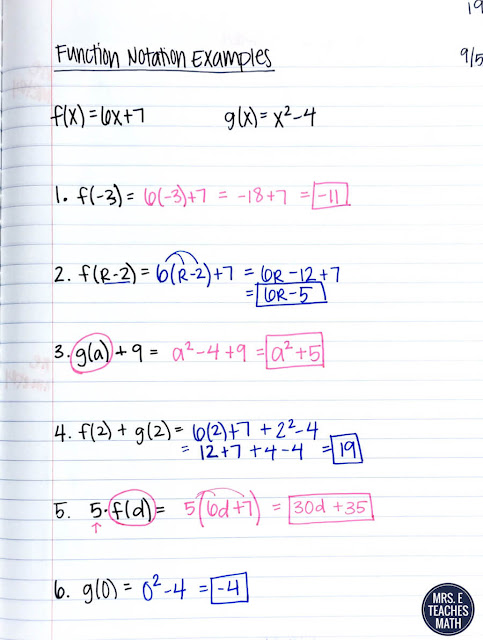 19
Function Notation Examples
9/5
f(x) = 6x+7 g(x) = x²-4
1. f(-3) = 6(-3)+7 = -18+7 = -11
2. f(R-2) = 6(R-2)+7 = 6R-12+7
= 6R-5
3. g(a) + 9 = a²-4+9 = a²+5
4. f(2) + g(2) = 6(2)+7 + 2²-4
= 12+7+4-4 = 19
5. 5·f(d) = 5(6d+7) = 30d+35
6. g(0) = 0²-4 = -4
MRS. E
TEACHES
MATH